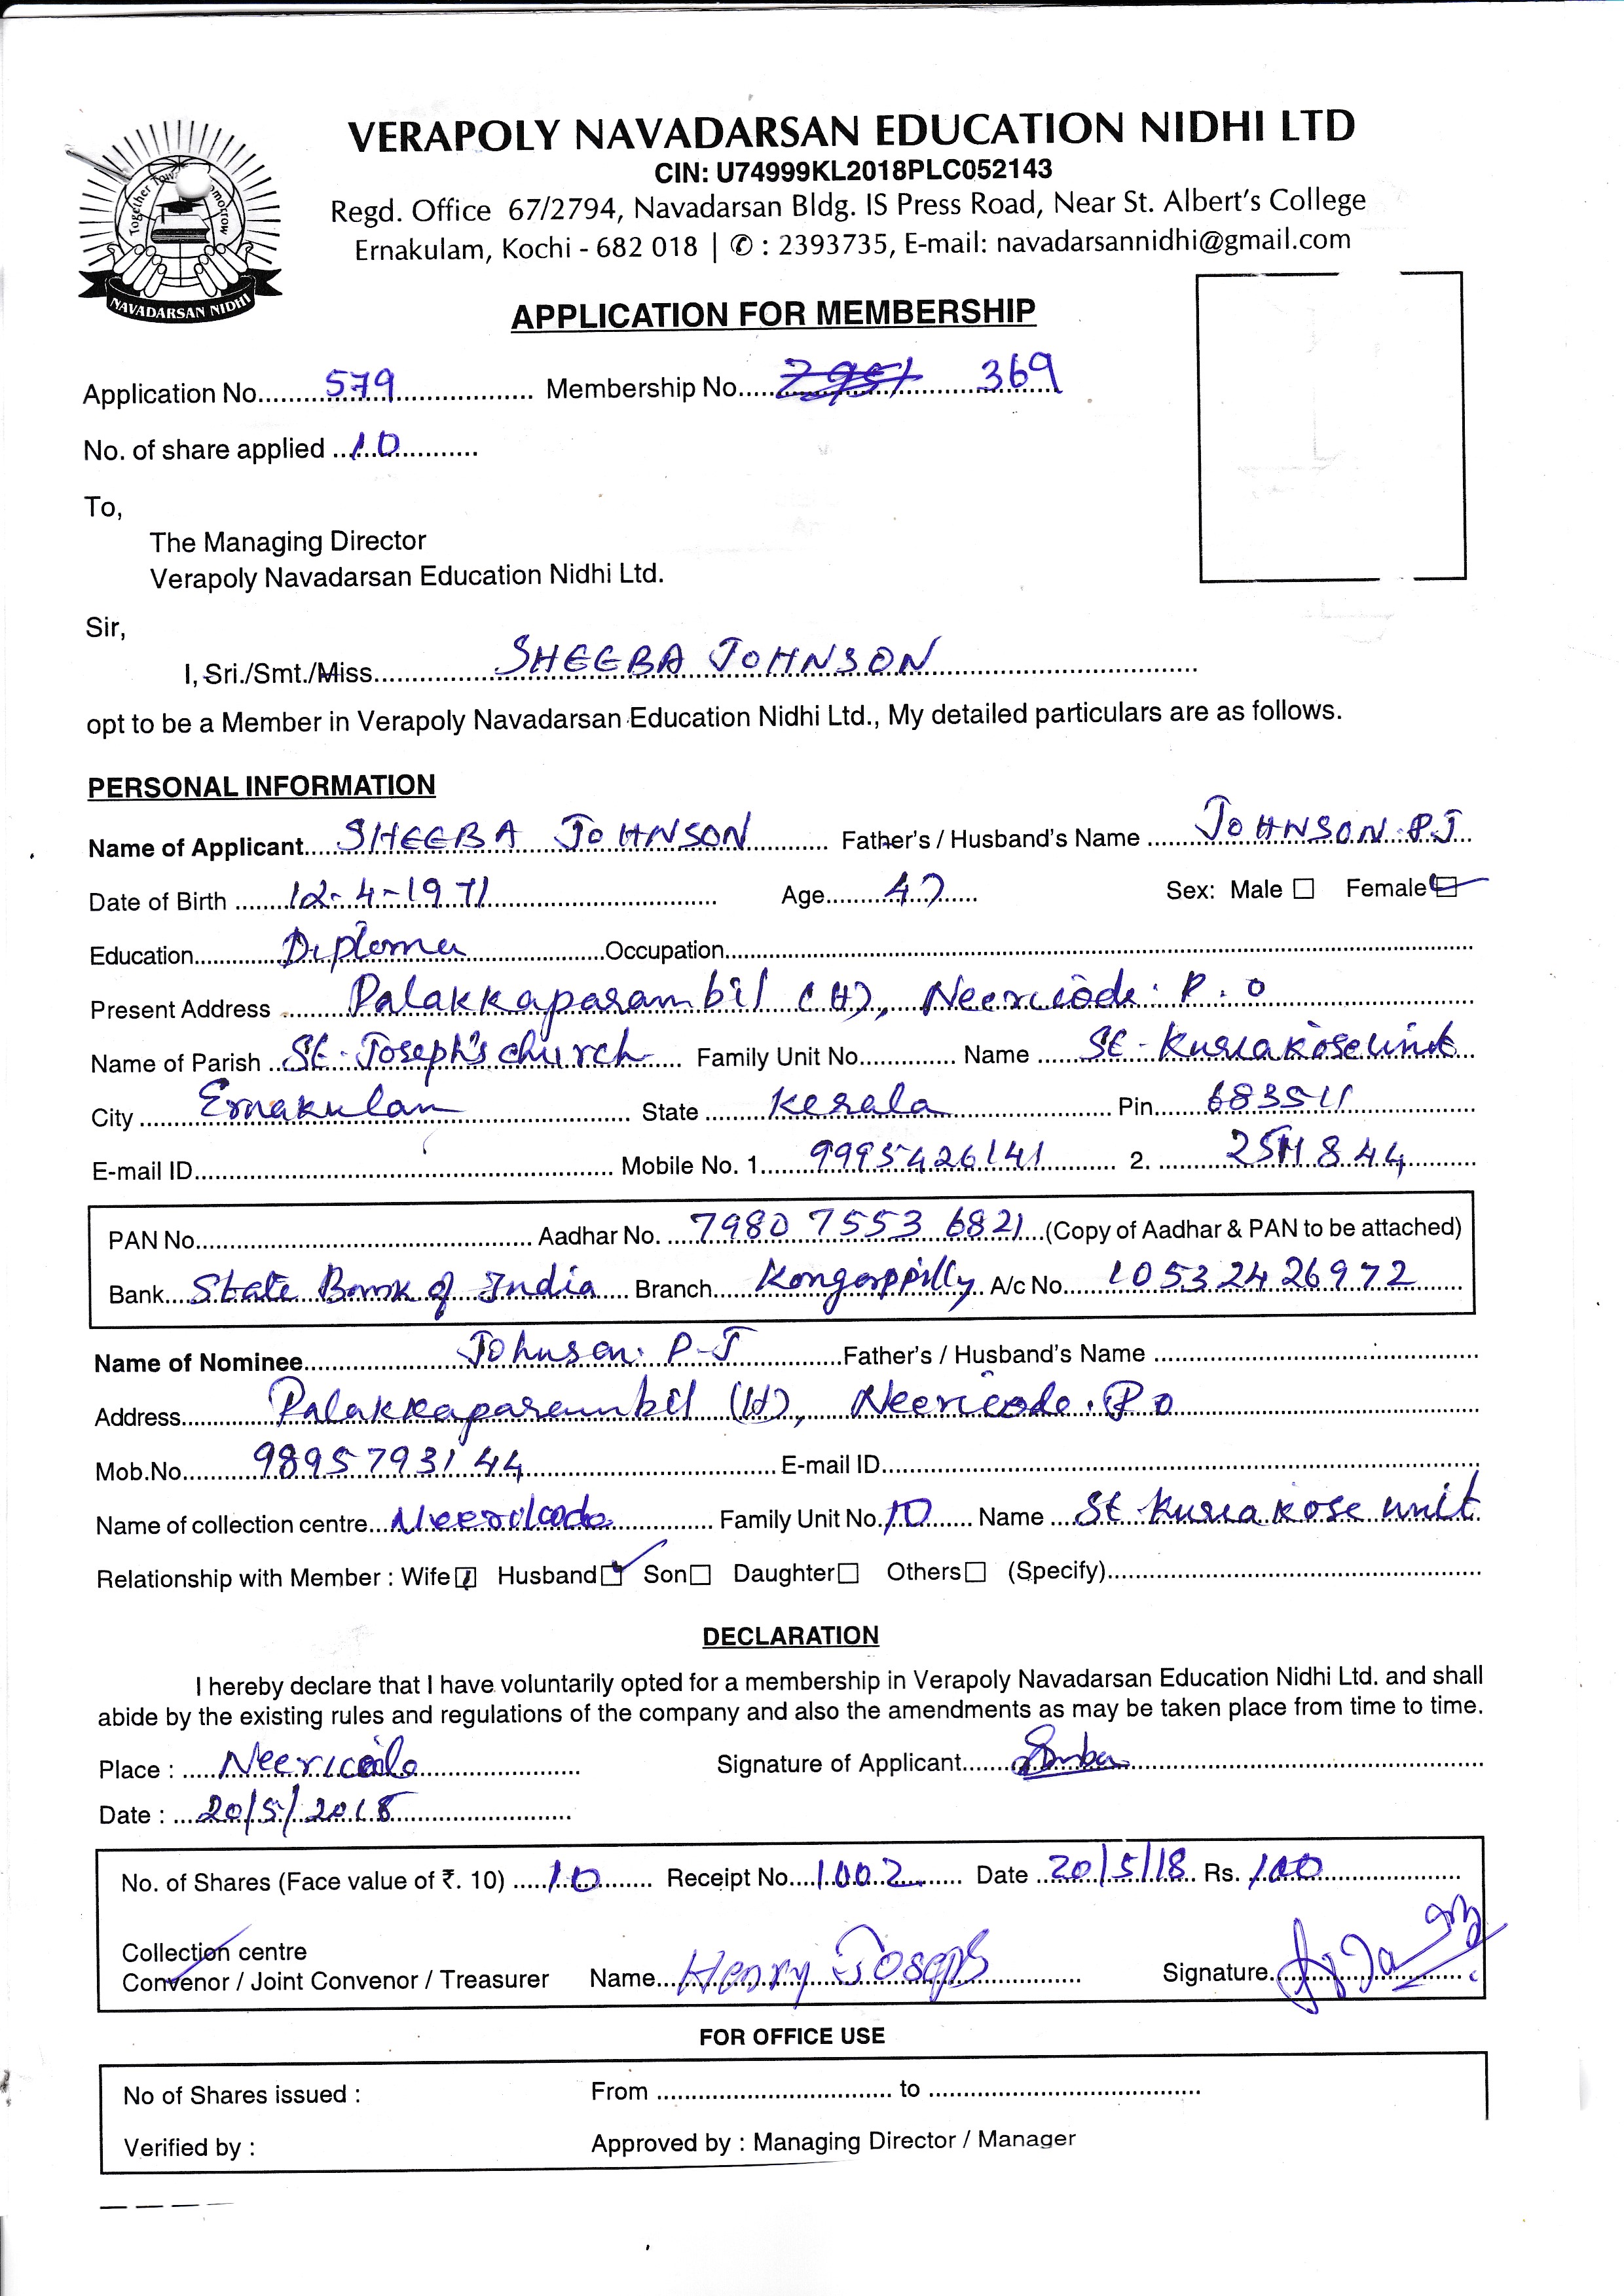 VERAPOLY NAVADARSAN EDUCATION NIDHI LTD
CIN: U74999KL2018PLC052143
Regd. Office 67/2794, Navadarsan Bldg. IS Press Road, Near St. Albert's College
Ernakulam, Kochi - 682 018 | ✆ : 2393735, E-mail: navadarsannidhi@gmail.com
NAVADARSAN NIDHI
APPLICATION FOR MEMBERSHIP
Application No. 579 Membership No. 369
No. of share applied 10
To,
The Managing Director
Verapoly Navadarsan Education Nidhi Ltd.
Sir,
I, Sri./Smt./Miss. SHEEBA JOHNSON
opt to be a Member in Verapoly Navadarsan Education Nidhi Ltd., My detailed particulars are as follows.
PERSONAL INFORMATION
Name of Applicant SHEEBA JOHNSON Father's / Husband's Name JOHNSON. P.J
Date of Birth 12-4-1971 Age 47 Sex: Male ☐ Female ☑
Education Diploma Occupation
Present Address Palakkaparambil (H), Neericode. P.O
Name of Parish St. Joseph's church Family Unit No. Name St. Kuriakose unit
City Ernakulam State Kerala Pin 683511
E-mail ID Mobile No. 1 9995426141 2. 2511844
PAN No. Aadhar No. 7980 7553 6821 (Copy of Aadhar & PAN to be attached)
Bank State Bank of India Branch Kongorppilly A/c No. 10532426972
Name of Nominee Johnson. P-J Father's / Husband's Name
Address Palakkaparambil (H), Neericode. P.O
Mob.No. 9895793144 E-mail ID
Name of collection centre Neericode Family Unit No. 10 Name St Kuriakose unit
Relationship with Member : Wife ☐ Husband ☑ Son ☐ Daughter ☐ Others ☐ (Specify)
DECLARATION
I hereby declare that I have voluntarily opted for a membership in Verapoly Navadarsan Education Nidhi Ltd. and shall
abide by the existing rules and regulations of the company and also the amendments as may be taken place from time to time.
Place : Neericode Signature of Applicant
Date : 20/5/2018
No. of Shares (Face value of ₹. 10) 10 Receipt No. 1002 Date 20/5/18 Rs. 100
Collection centre
Convenor / Joint Convenor / Treasurer Name Henry Joseph Signature
FOR OFFICE USE
No of Shares issued : From to
Verified by : Approved by : Managing Director / Manager